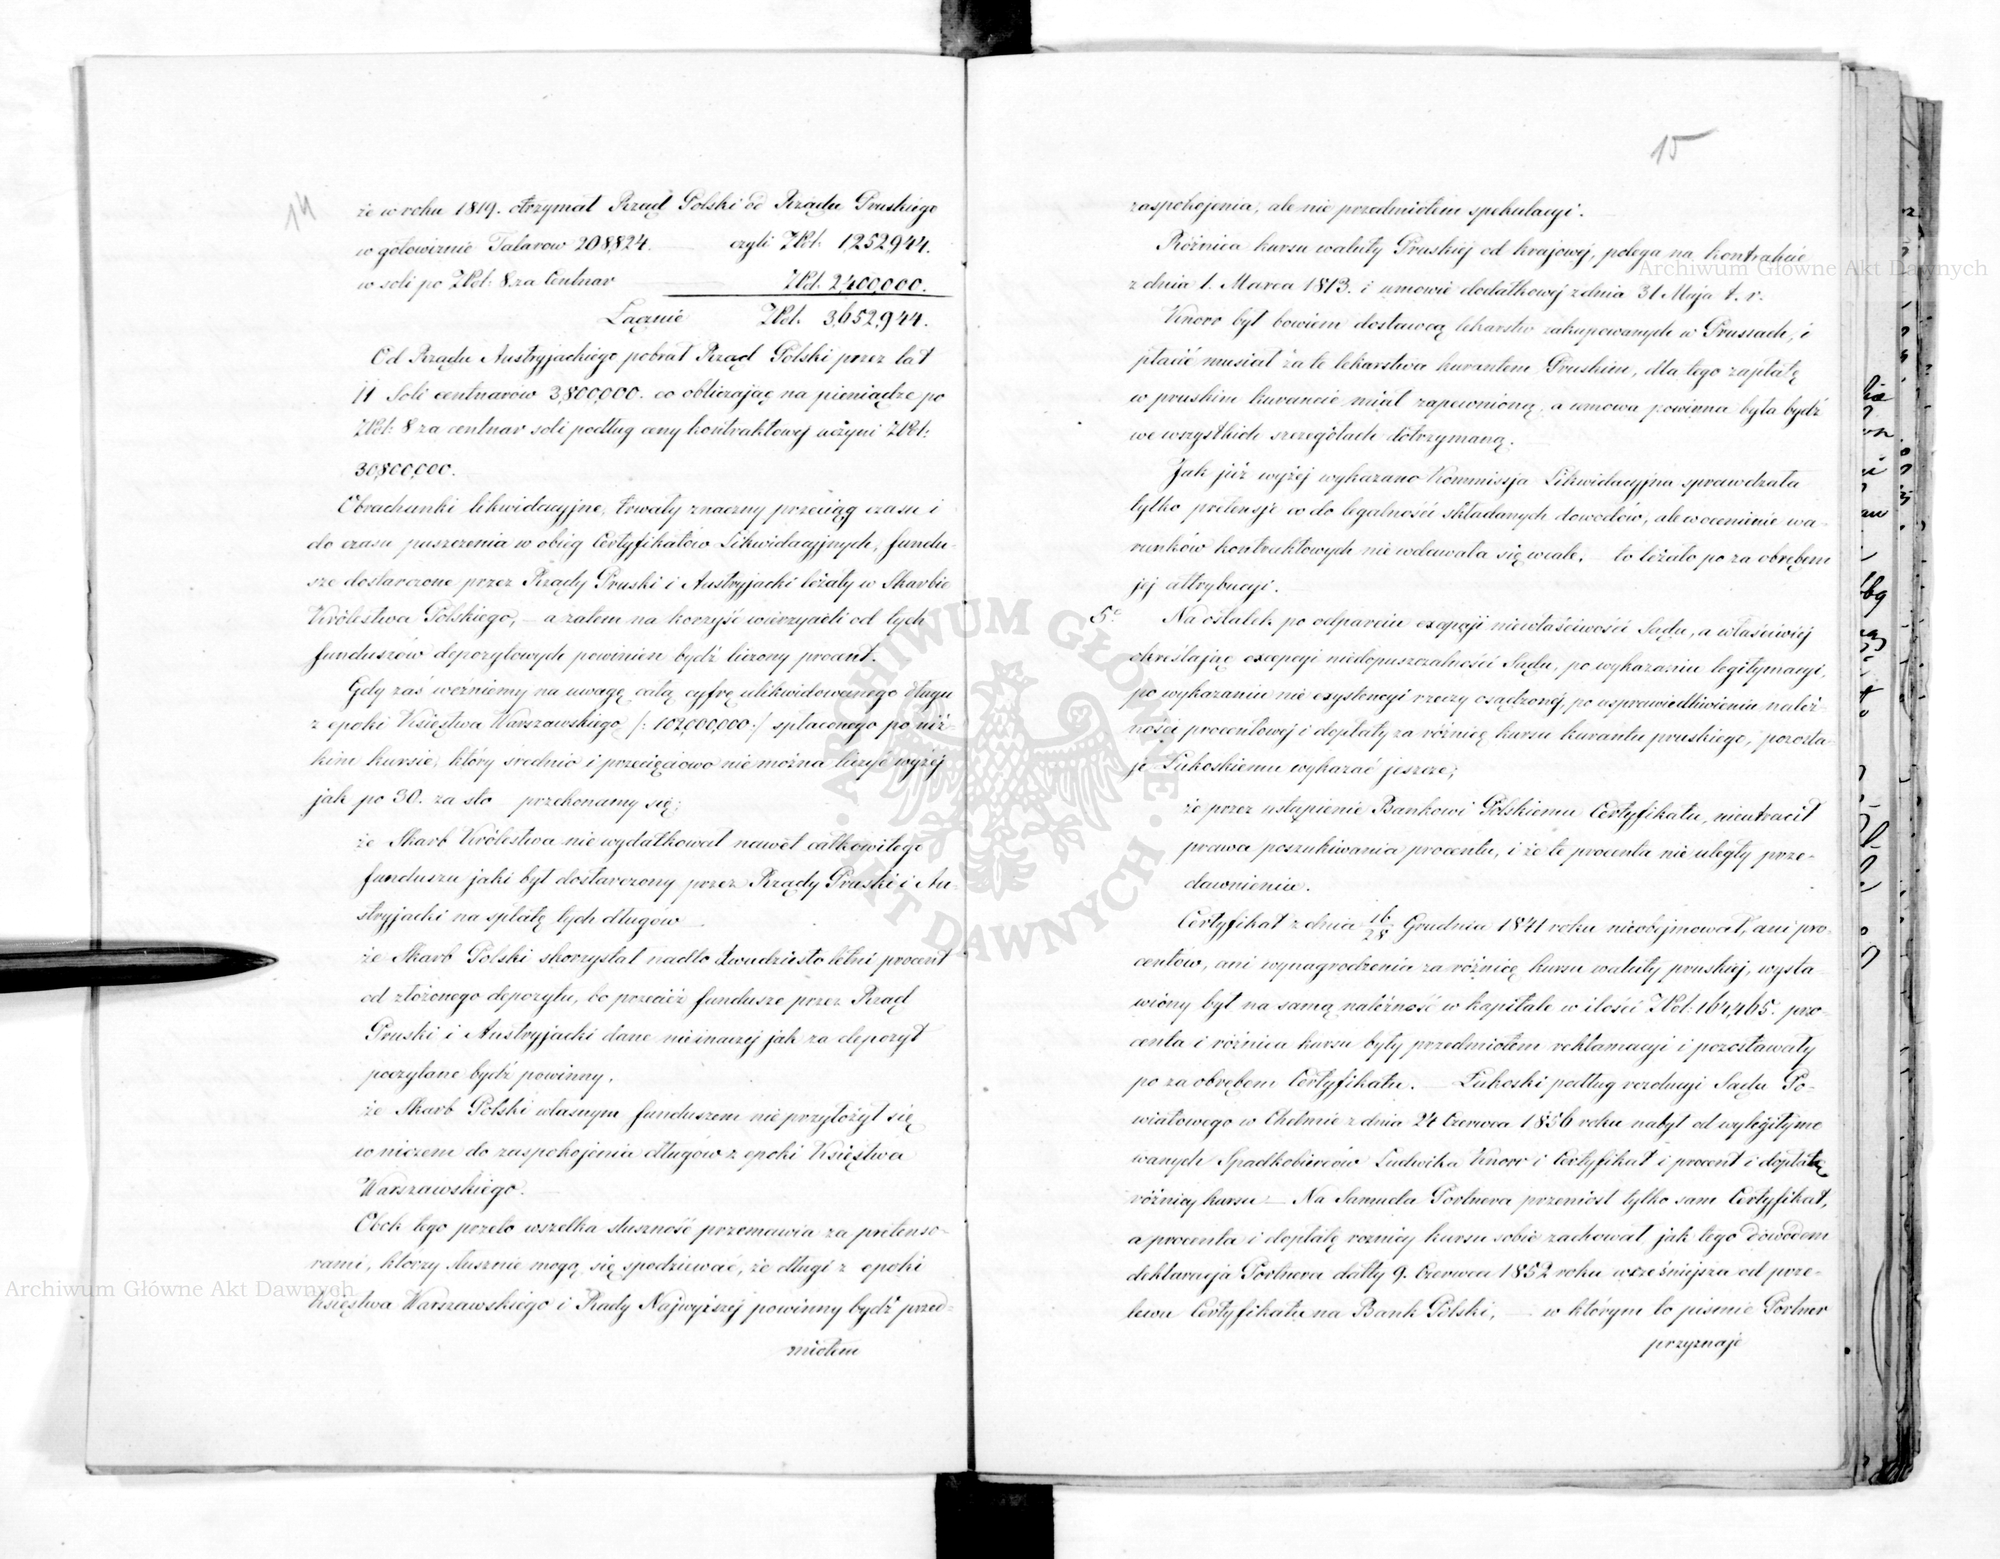 14
że w roku 1819. otrzymał Rząd Polski od Rządu Pruskiego
w gotowiznie Talarow 208,824. czyli ZPol: 1,252,944.
w soli po ZPol: 8. za Centnar ZPol. 2,400,000.
Łącznie ZPol. 3,652,944.
Od Rządu Austryjackiego pobrał Rząd Polski przez lat
11 Soli centnarów 3,800,000. co obliczając na pieniądze po
ZPol: 8 za centnar soli podług ceny kontraktowej uczyni ZPol:
30,800,000.
Obrachunki likwidacyjne, trwały znaczny przeciąg czasu i
do czasu puszczenia w obieg Certyfikatów Likwidacyjnych, fundu-
sze dostarczone przez Rządy Pruski i Austryjacki leżały w Skarbie
Królestwa Polskiego, — a zatem na korzyść wierzycieli od tych
funduszów depozytowych powinien bydź liczony procent.
Gdy zaś weźniemy na uwagę całą cyfrę ulikwidowanego długu
z epoki Księstwa Warszawskiego /: 102,000,000 :/ spłaconego po niz-
kim kursie, który średnio i przecięciowo nie można liczyć wyżej
jak po 30. za sto przekonamy się;
że Skarb Królestwa nie wydatkował nawet całkowitego
funduszu jaki był dostarczony przez Rządy Pruski i Au-
stryjacki na spłatę tych długów —
że Skarb Polski skorzystał nadto dwudziesto letni procent
od złożonego depozytu, bo przecież fundusze przez Rząd
Pruski i Austryjacki dane nieinaczej jak za depozyt
poczytane bydź powinny,
że Skarb Polski własnym funduszem nie przyłożył się
w niczem do zaspokojenia długów z epoki Księstwa
Warszawskiego. —
Obok tego przeto wszelka słuszność przemawia za pretenso-
rami, którzy słusznie mogą się spodziewać, że długi z epoki
Księstwa Warszawskiego i Rady Najwyższej powinny bydź przed-
miotem
15
zaspokojenia, ale nie przedmiotem spekulacyi.
Różnica kursu waluty Pruskiej od krajowej, polega na kontrakcie
z dnia 1. Marca 1813. i umowie dodatkowej z dnia 31 Maja t. r.
Knorr był bowiem dostawcą lekarstw zakupowanych w Prusach, i
płacić musiał za te lekarstwa kurantem Pruskim, dla tego zapłatę
w pruskim kurancie miał zapewnioną, a umowa powinna była bydź
we wszystkich szczegółach dotrzymaną.
Jak już wyżej wykazano Kommissja Likwidacyjna sprawdzała
tylko pretensje co do legalności składanych dowodów, ale w ocenienie wa-
runków kontraktowych nie wdawała się wcale, — to leżało po za obrębem
jej attrybucyi.
5o Na ostatek po odparciu excepcji niewłaściwości Sądu, a właściwiej
określając excepcyi niedopuszczalności Sądu, po wykazaniu legitymacyi,
po wykazaniu nie exystencyi rzeczy osądzonej, po usprawiedliwieniu należ-
ności procentowej i dopłaty za różnicę kursu kurantu pruskiego, pozosta-
je Łukoskiemu wykazać jeszcze;
że przez ustąpienie Bankowi Polskiemu Certyfikatu, nieutracił
prawa poszukiwania procentu, i że te procenta nie uległy prze-
dawnieniu.
Certyfikat z dnia 16/28 Grudnia 1841 roku nieobejmował, ani pro-
centów, ani wynagrodzenia za różnicę kursu waluty pruskiej, wysta-
wiony był na samą należność w kapitale w ilości ZPol: 164,465. pro-
centa i różnica kursu były przedmiotem reklamacyi i pozostawały
po za obrębem Certyfikatu. — Łukoski podług rezolucyi Sądu Po-
wiatowego w Chełmie z dnia 24 Czerwca 1856 roku nabył od wylegityme
wanych Spadkobierców Ludwika Knorr i Certyfikat i procent i dopłatę
różnicy kursu — Na Samuela Portnera przeniósł tylko sam Certyfikat,
a procenta i dopłatę roznicy kursu sobie zachował jak tego dowodem
deklaracja Portnera datty 9. Czerwca 1852 roku wcześniejsza od prze-
lewu Certyfikatu na Bank Polski, — w którym to pismie Portner
przyznaje
Archiwum Główne Akt Dawnych
Archiwum Główne Akt Dawnych
ARCHIWUM GŁÓWNE AKT DAWNYCH